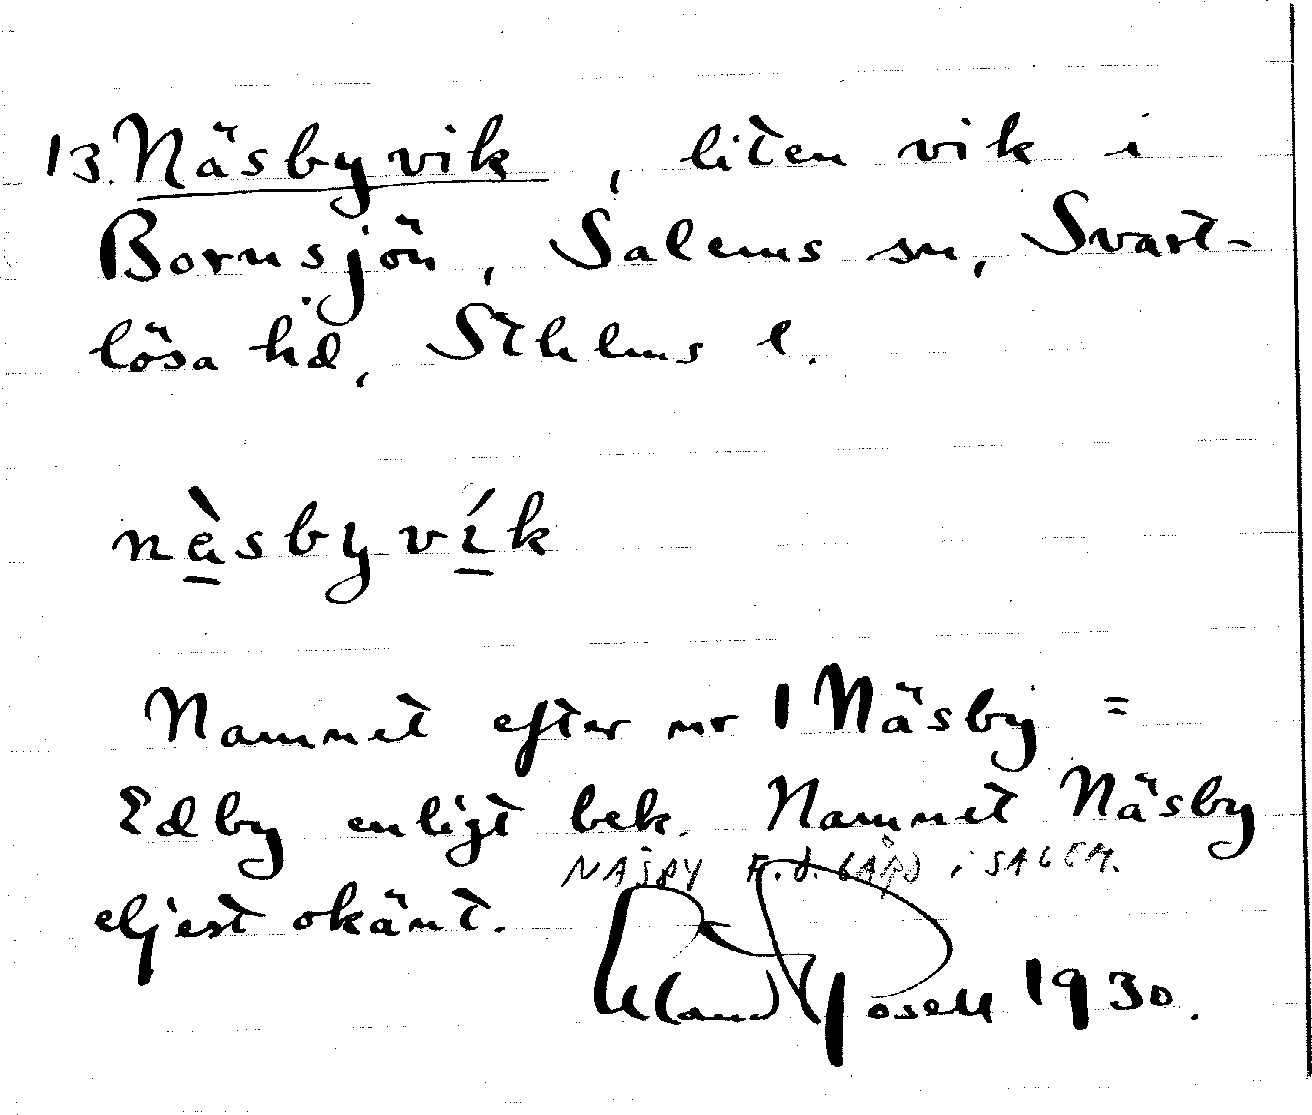 13. Näsbyvik, liten vik i
Bornsjön, Salems sn, Svart-
lösa hd, Sthlms l.
nä̀sbyvík
Namnet efter nr 1 Näsby =
Edby enligt bek. Namnet Näsby
NÄSBY F.D. GÅRD i SALEM.
eljest okänt. Erland Rosell 1930.